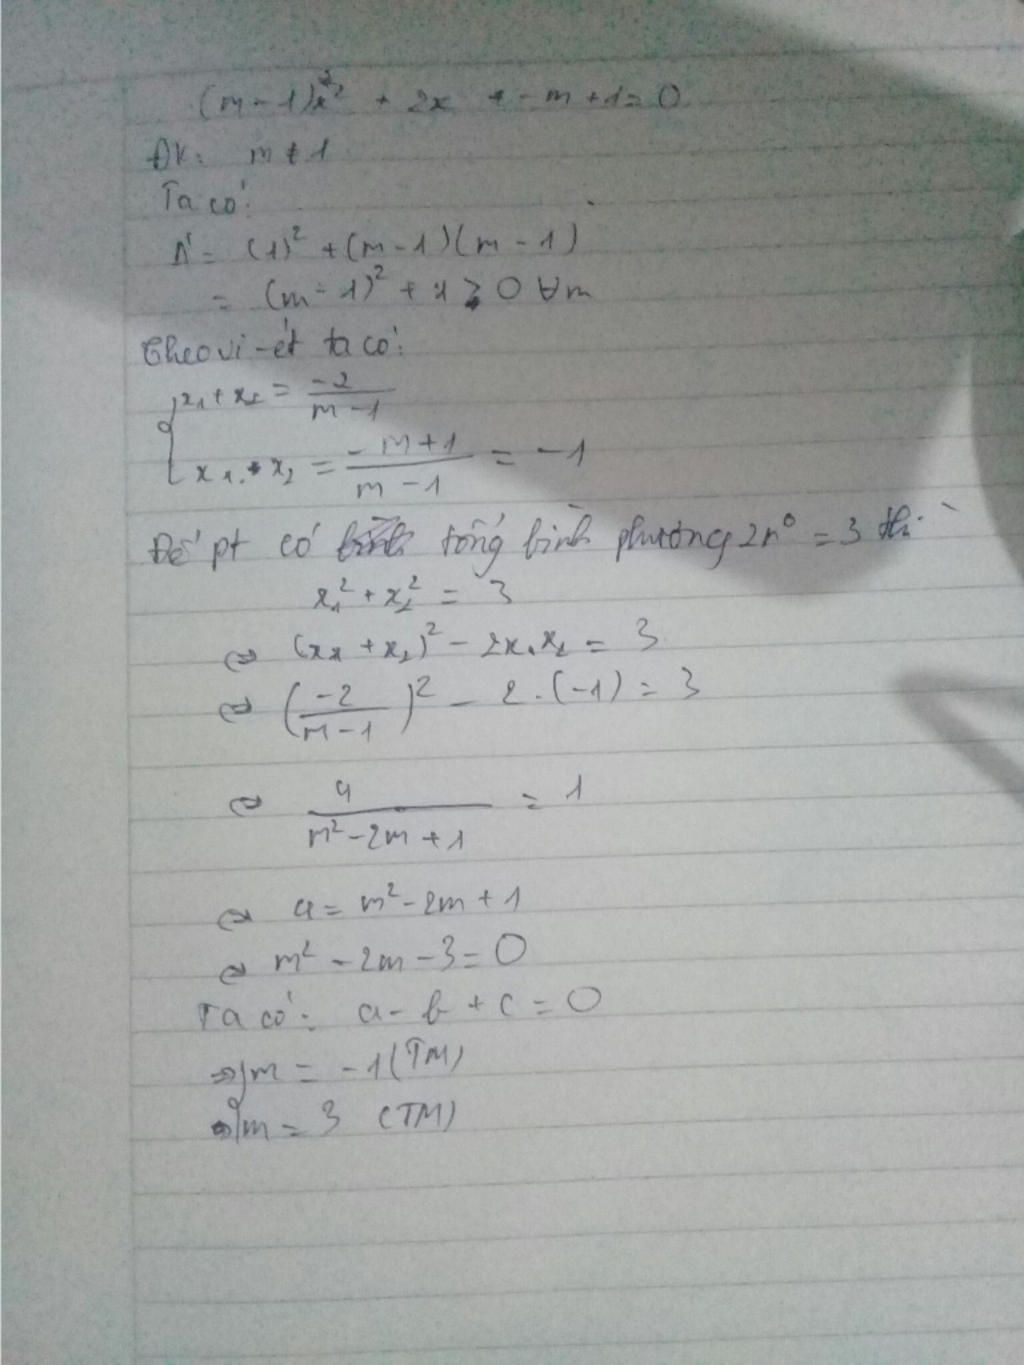 (m - 1)x² + 2x - m + 1 = 0
ĐK: m ≠ 1
Ta có:
Δ' = (1)² + (m - 1)(m - 1)
= (m - 1)² + 1 ≥ 0 ∀m
Theo vi-ét ta có:
x₁ + x₂ = -2 / m - 1
x₁ . x₂ = -m + 1 / m - 1 = -1
Để pt có tổng bình phương 2n⁰ = 3 thì
x₁² + x₂² = 3
⇔ (x₁ + x₂)² - 2x₁x₂ = 3
⇔ (-2 / m - 1)² - 2 . (-1) = 3
⇔ 4 / m² - 2m + 1 = 1
⇔ 4 = m² - 2m + 1
⇔ m² - 2m - 3 = 0
Ta có: a - b + c = 0
⇒ m = -1 (TM)
m = 3 (TM)